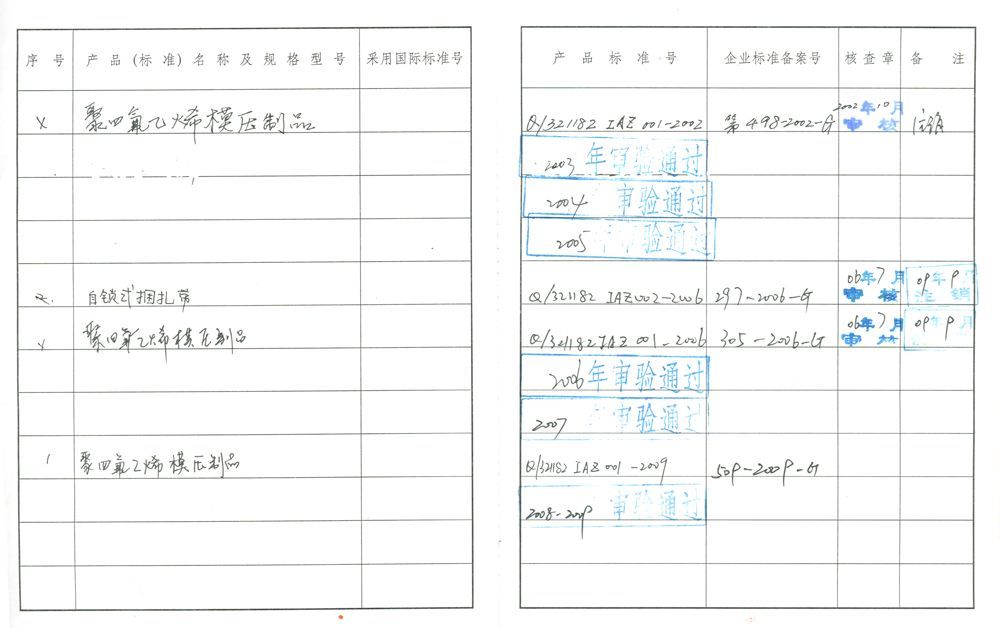 序号 产品(标准)名称及规格型号 采用国际标准号 产品标准号 企业标准备案号 核查章 备注
聚四氟乙烯模压制品 Q/321182 IAZ 001-2002 第498-2002-G 2002年10月审核 注销
2003年审验通过
2004 审验通过
2005年审验通过
2. 自锁式捆扎带 Q/321182 IAZ002-2006 297-2006-G 06年7月审核 09年9月注销
聚四氟乙烯模压制品 Q/321182 IAZ 001-2006 305-2006-G 06年7月审核 09年9月
2006年审验通过
2007年审验通过
1 聚四氟乙烯模压制品 Q/321182 IAZ 001-2009 509-2009-G
2008-2009 审验通过